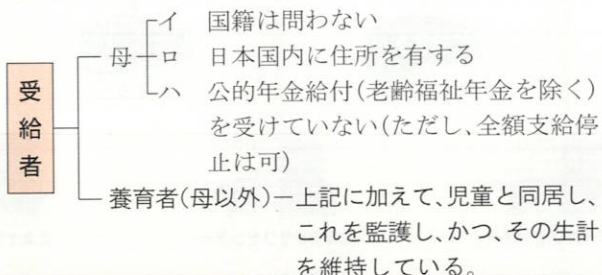 受給者
母
イ 国籍は問わない
ロ 日本国内に住所を有する
ハ 公的年金給付(老齢福祉年金を除く)
を受けていない(ただし、全額支給停
止は可)
養育者(母以外)―上記に加えて、児童と同居し、
これを監護し、かつ、その生計
を維持している。